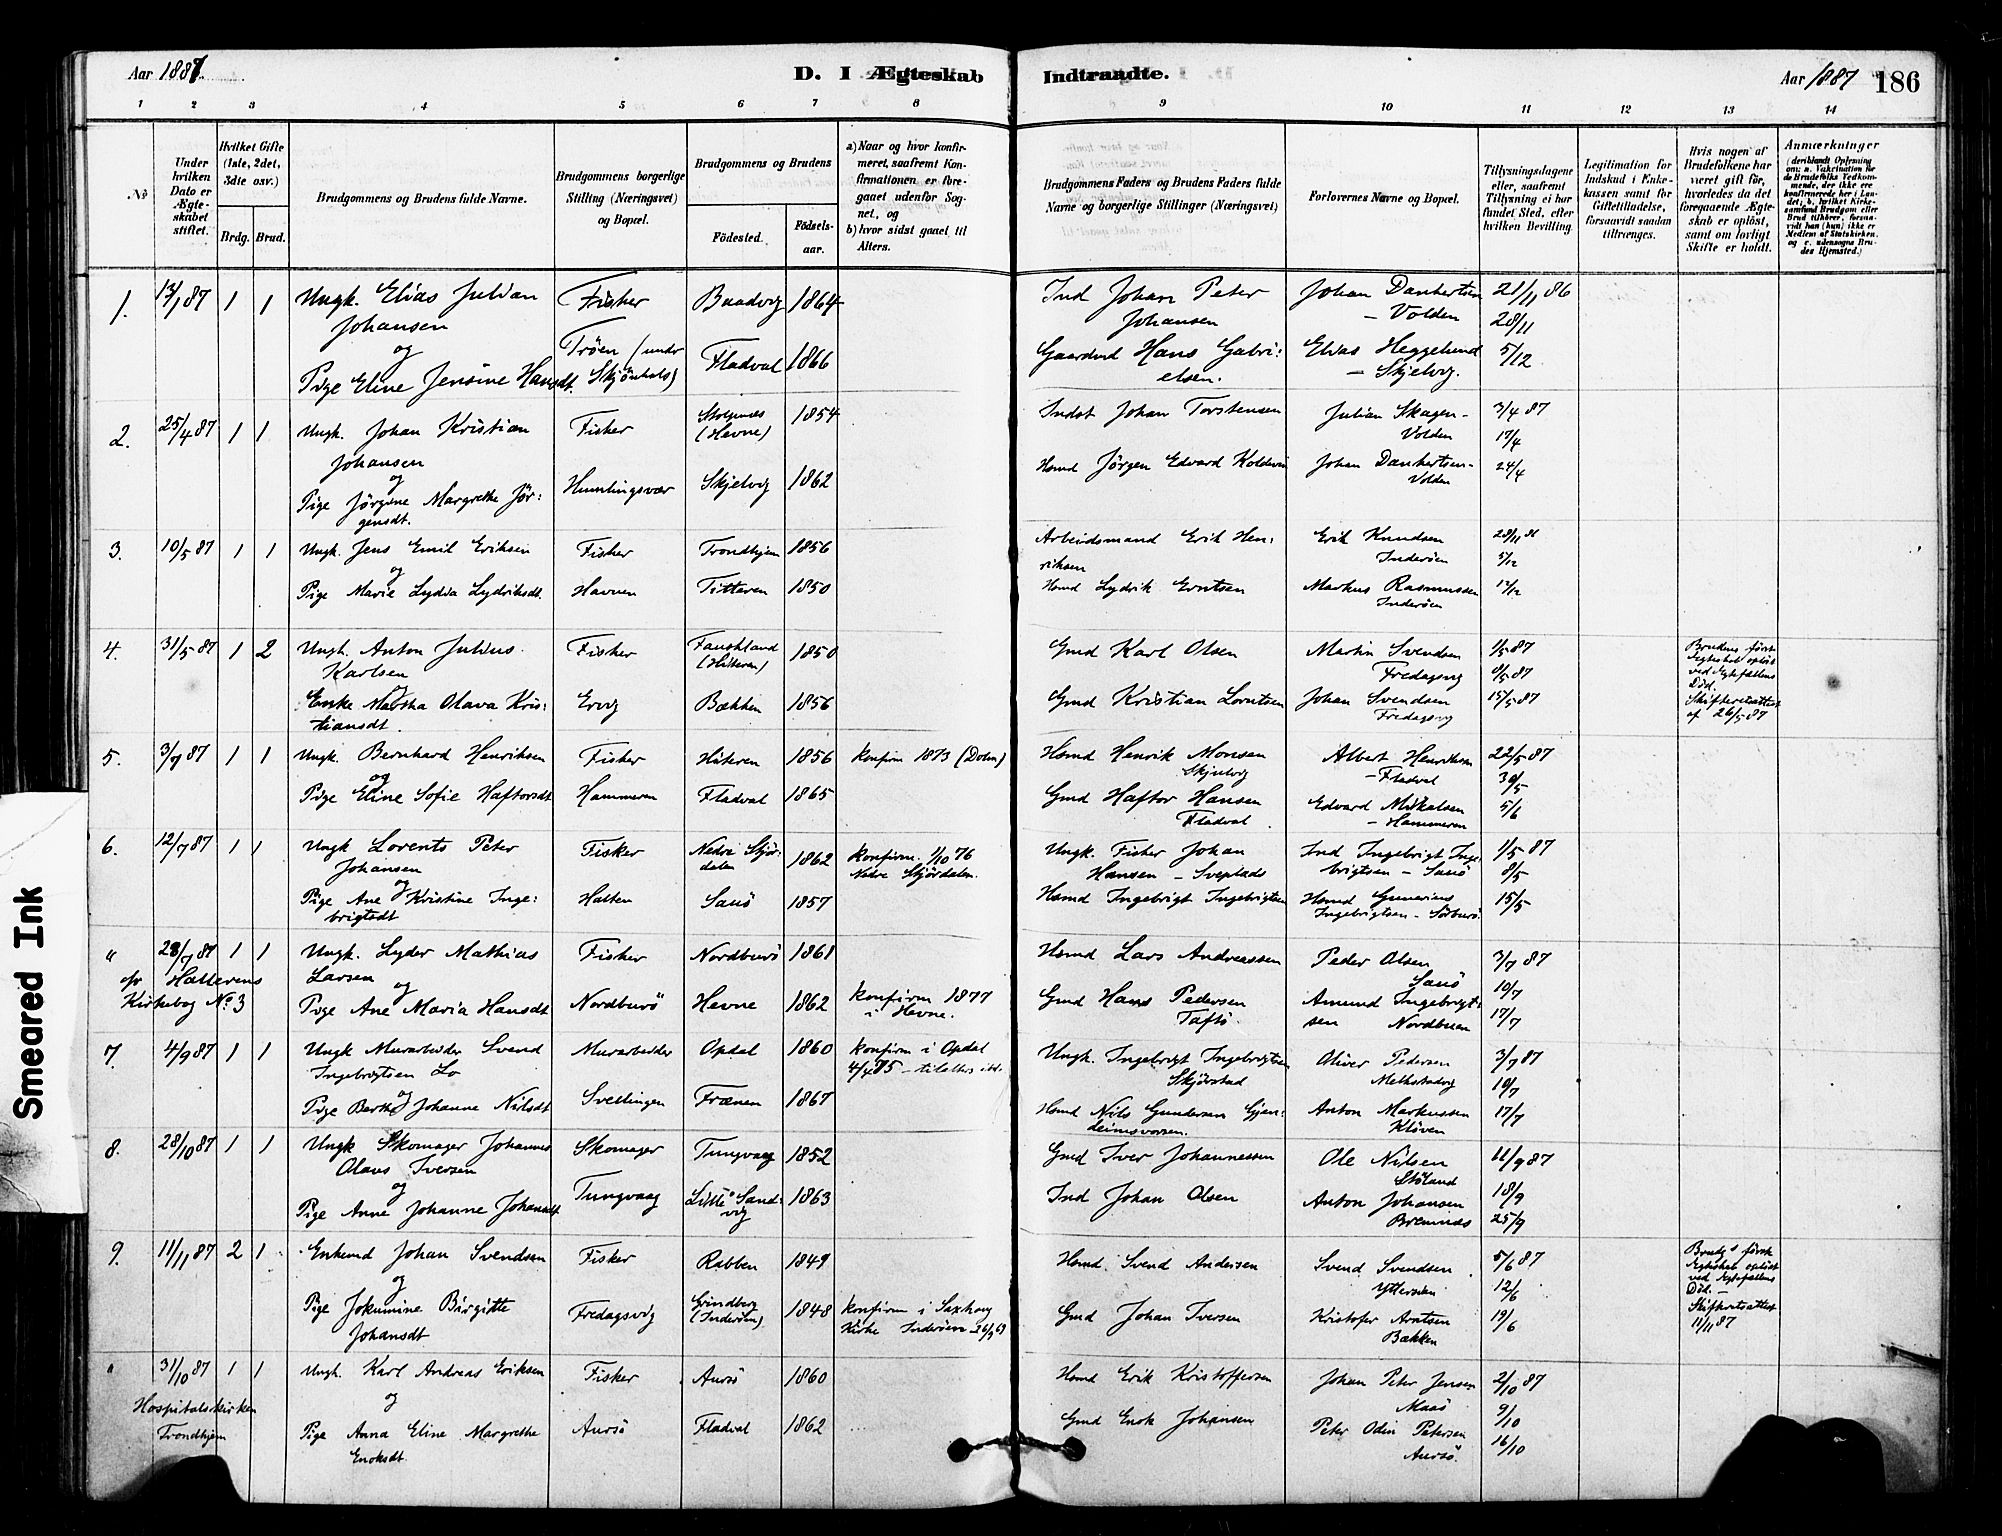 Aar 1887.
D. I Ægteskab
Indtraadte.
Aar 1887
186
1 2 3 4 5 6 7 8 9 10 11 12 13 14
No
Under hvilken Dato er Ægteskabet stiftet.
Hvilket Gifte (1ste, 2det, 3die osv.)
Brdg. Brud.
Brudgommens og Brudens fulde Navne.
Brudgommens borgerlige Stilling (Næringsvei) og Bopæl.
Brudgommens og Brudens
Fødested.
Fødselsaar.
a) Naar og hvor konfirmeret, saafremt Konfirmationen er foregaaet udenfor Sognet, og
b) hvor sidst gaaet til Alters.
Brudgommens Faders og Brudens Faders fulde Navne og borgerlige Stillinger (Næringsvei)
Forlovernes Navne og Bopæl.
Tillysningsdagene eller, saafremt Tillysning ei har fundet Sted, efter hvilken Bevilling.
Legitimation for Indskud i Enkekassen samt for Giftetilladelse, forsaavidt saadan tiltrænges.
Hvis nogen af Brudefolkene har været gift før, hvorledes da det foregaaende Ægteskab er opløst, samt om lovligt Skifte er holdt.
Anmærkninger
1. 1 1 Ungk. Elias Julian Fisher Baadvig 1864 Ind Johan Peter Johan Dankertsen 21/11 86
Johansen Johansen – Volden 28/11
og Trøen (under
Pige Eline Jensine Hansdt. Skjønhals) Fladval 1866 Gaardmd Hans Gabrielsen. Elias Heggelund 5/12
– Skjelvig.
2. 25/4 87 1 1 Ungk. Johan Kristian Fisker (Hevne) 1854 Indst Johan Torstensen Julian Skagen – 3/4 87
Johansen Volden 17/4
og
Pige Jørgine Margrethe Jør: Humlingsvær Skjelvig 1862 Hsmd Jørgen Edvard Johan Dankertsen – 24/4
gensdt. Volden
3. 10/5 87 1 1 Ungk. Jens Emil Eriksen Fisker Trondhjem 1856 Arbeidsmand Erik Hen: Erik Knudsen 28/11 86
og riksen Inderøen 5/12
Pige Marie Lydia Lydriksdt. Havnen Titteren 1850 Hsmd Lydrik Erntsen Markus Rasmussen 12/12
Inderøen
4. 31/5 87 1 2 Ungk. Anton Julius Fisker (Hitteren) 1850 Gmd Karl Olsen Martin Svendsen 1/5 87
Karlsen Fredagsvig 8/5 87
og
Enke Martha Olava Kris: Ervig Bækken 1856 Gmd Kristian Lorntsen Johan Svendsen 15/5 87
tiansdt. Fredagsvig
Brudens første Ægteskab opløst ved Ægtefællens Død. Skifteretsattest af 26/5 87
5. 3/7 87 1 1 Ungk. Bernhard Henriksen Fisker Hiteren 1856 konfirm 1873 (Dolm) Hsmd Henrik Monsen Albert Henriksen 22/5 87
og Skjelvig – Fladval 30/5
Pige Eline Sofie Haftorsdt Hammeren Fladval 1865 Gmd Haftor Hansen Edvard Mikalsen 5/6
Fladval. – Hammeren
6. 12/7 87 1 1 Ungk Lorents Peter Fisker Nedre Stjør: 1862 konfirm. 1/10 76 Ungk. Fisker Johan Ind Ingebrigt Inge: 1/5 87
Johansen dalen Nedre Stjørdalen. Hansen – brigtsen – Sauø 8/5
og
Pige Ane Kristine Inge: Halten Sauø 1857 Hsmd Ingebrigt Ingebrigtsen Hsmd Gunerius 15/5
brigtsdt Ingebrigtsen – Sørburø
" 28/7 87 1 1 Ungk. Lyder Mathias Fisker Nordburø 1861 Hsmd Lars Andreassen Peder Olsen 3/7 87
Larsen Sauø 10/7
Kirkebog No 3 og
Pige Ane Maria Hansdt Nordburø Hevne 1862 konfirm 1877 i Hevne. Gmd Hans Pedersen Amund Ingebrigt: 17/7
Taftø. sen
7. 4/9 87 1 1 Ungk Murarbeider Svend Murarbeider Opdal 1860 konfirm i Opdal Ungk. Ingebrigt Ingebrigtsen Oliver Pedersen 3/7 87
Ingebrigtsen Lo Skjørstad 10/7
og
Pige Berthe Johanne Nilsdt Svellingen Frænen 1867 Hsmd Nils Gundersen Anton Markussen 17/7
Kløven
8. 28/10 87 1 1 Ungk Skomager Johannes Skomager Tungvaag 1852 Gmd Iver Johannessen Ole Nilsen 11/9 87
Olaus Iversen Støland 18/9
og
Pige Anne Johanne Johansdt Tungvaag Litle Sand: vig 1863 Ind Johan Olsen Anton Johansen 25/9
Bremnes
9. 11/11 87 2 1 Enkemd Johan Svendsen Fisker Rabben 1849 Hsmd Svend Andersen Svend Svendsen 5/6 87
og 12/6
Pige Jokumine Birgitte Fredagsvig Grindberg (Inderøen) 1848 konfirm i Saxhaug Gmd Johan Iversen Kristofer Arntsen 19/6
Johansdt Kirke Inderøen Bakken
Brudg's første Ægteskab opløst ved Ægtefællens Død. – Skifteretsattest 11/11 87
" 31/10 87 1 1 Ungk. Karl Andreas Eriksen Fisker Aursø 1860 Hsmd Erik Kristoffersen Johan Peter Jensen 2/10 87
Hospitalskirken og Maasø 9/10
Trondhjem Pige Anna Eline Margrethe Aursø Fladval 1862 Gmd Enok Johansen Peter Odin Petersen 16/10
Enoksdt. Aursø.
Smeared Ink